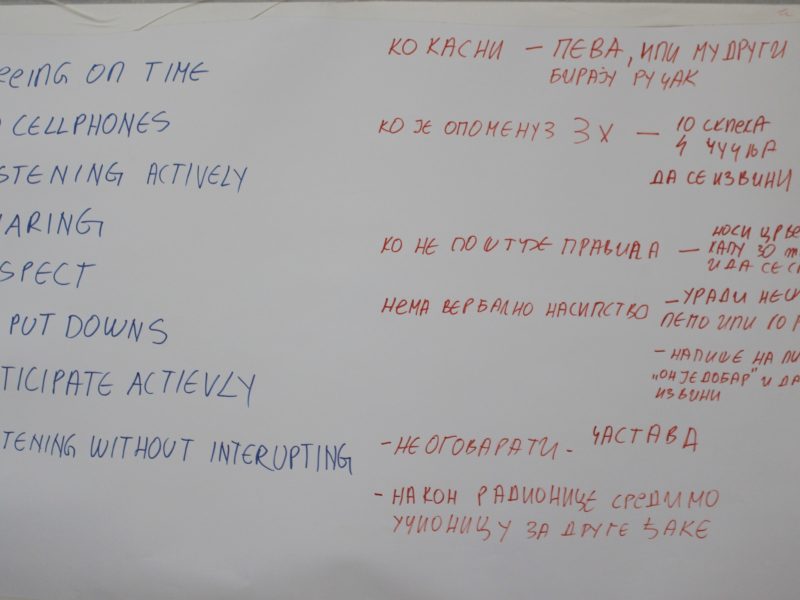 REEING ON TIME
CELLPHONES
STENING ACTIVELY
ARING
SPECT
PUT DOWNS
TICIPATE ACTIEVLY
TENING WITHOUT INTERUPTING
КО КАСНИ – ПЕВА, ИЛИ МУ ДРУГИ
БИРАЈУ РУЧАК
КО ЈЕ ОПОМЕНУЗ 3X – 10 СКЛЕКА
4 ЧУЧЊА
ДА СЕ ИЗВИНИ
КО НЕ ПОШТУЈЕ ПРАВИЛА – НОСИ ЦРВЕ
КАПУ 30 m
И ДА СЕ
НЕМА ВЕРБАЛНО НАСИЛСТВО – УРАДИ НЕШ
ЛЕПО ИЛИ ГО
– НАПИШЕ НА ЛИ
„ОН ЈЕ ДОБАР" И ДА
ИЗВИНИ
– НЕ ОГОВАРАТИ – ЧАСТАВА
– НАКОН РАДИОНИЦЕ СРЕДИМО
УЧИОНИЦУ ЗА ДРУГЕ ЂАКЕ